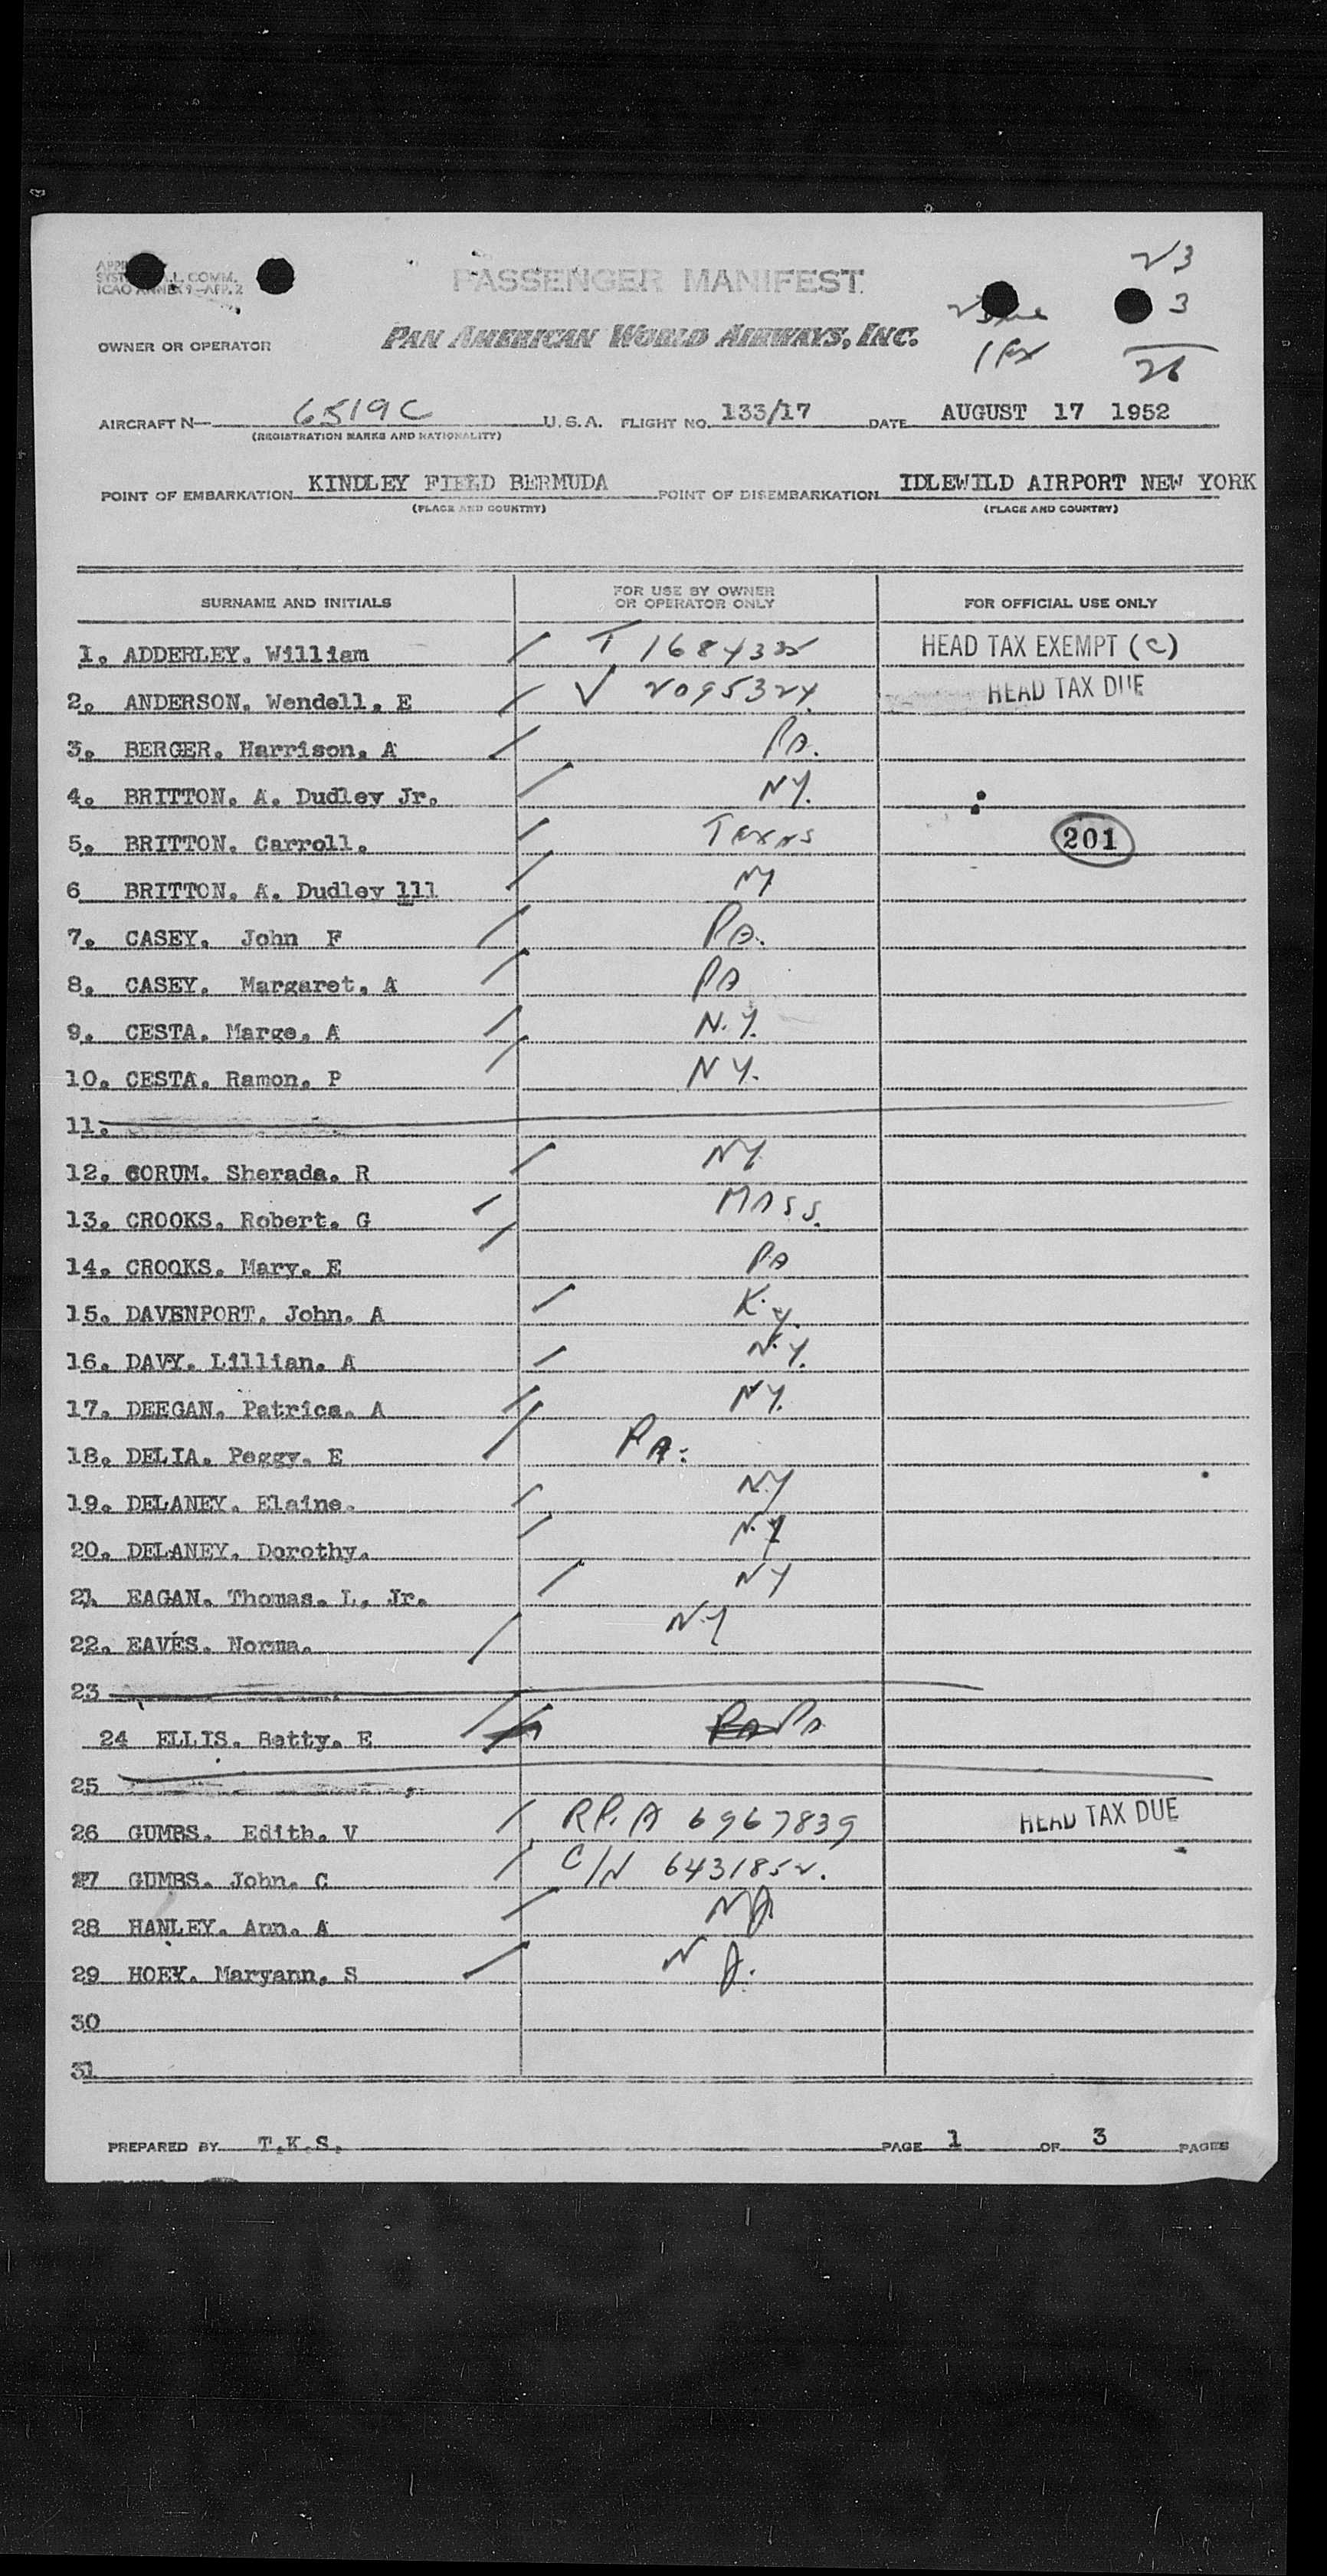 L. COMM.
ICAO ANNEX 9—APP. 2
PASSENGER MANIFEST
23
3
26
OWNER OR OPERATOR PAN AMERICAN WORLD AIRWAYS, INC.
AIRCRAFT N— 6519C U.S.A. FLIGHT NO. 133/17 DATE AUGUST 17 1952
(REGISTRATION MARKS AND NATIONALITY)
POINT OF EMBARKATION KINDLEY FIELD BERMUDA POINT OF DISEMBARKATION IDLEWILD AIRPORT NEW YORK
(PLACE AND COUNTRY) (PLACE AND COUNTRY)
SURNAME AND INITIALS FOR USE BY OWNER OR OPERATOR ONLY FOR OFFICIAL USE ONLY
1. ADDERLEY. William / T HEAD TAX EXEMPT (C)
2. ANDERSON. Wendell. E / V 2095324. HEAD TAX DUE
3. BERGER. Harrison. A / PA.
4. BRITTON. A. Dudley Jr. / NY.
5. BRITTON. Carroll. / Texas 201
6 BRITTON. A. Dudley lll / NY
7. CASEY. John F / PA.
8. CASEY. Margaret. A / PA
9. CESTA. Marge. A / N.Y.
10. CESTA. Ramon. P / NY.
11.
12. CORUM. Sherada. R / NY
13. CROOKS. Robert. G / MASS.
14. CROOKS. Mary. E / PA
15. DAVENPORT. John. A / K.y.
16. DAVY. Lillian. A / N.Y.
17. DEEGAN. Patrica. A / NY.
18. DELIA. Peggy. E / PA.
19. DELANEY. Elaine. / N.Y
20. DELANEY. Dorothy. / N.Y
21. EAGAN. Thomas. L. Jr. / NY
22. EAVES. Norma. / N.Y
23
24 ELLIS. Betty. E / PA PA
25
26 GUMBS. Edith. V / RP. A 6967839 HEAD TAX DUE
27 GUMBS. John. C / C/N 6431852.
28 HANLEY. Ann. A / NJ
29 HOEY. Maryann. S / N J.
30
31
PREPARED BY T.K.S. PAGE 1 OF 3 PAGES